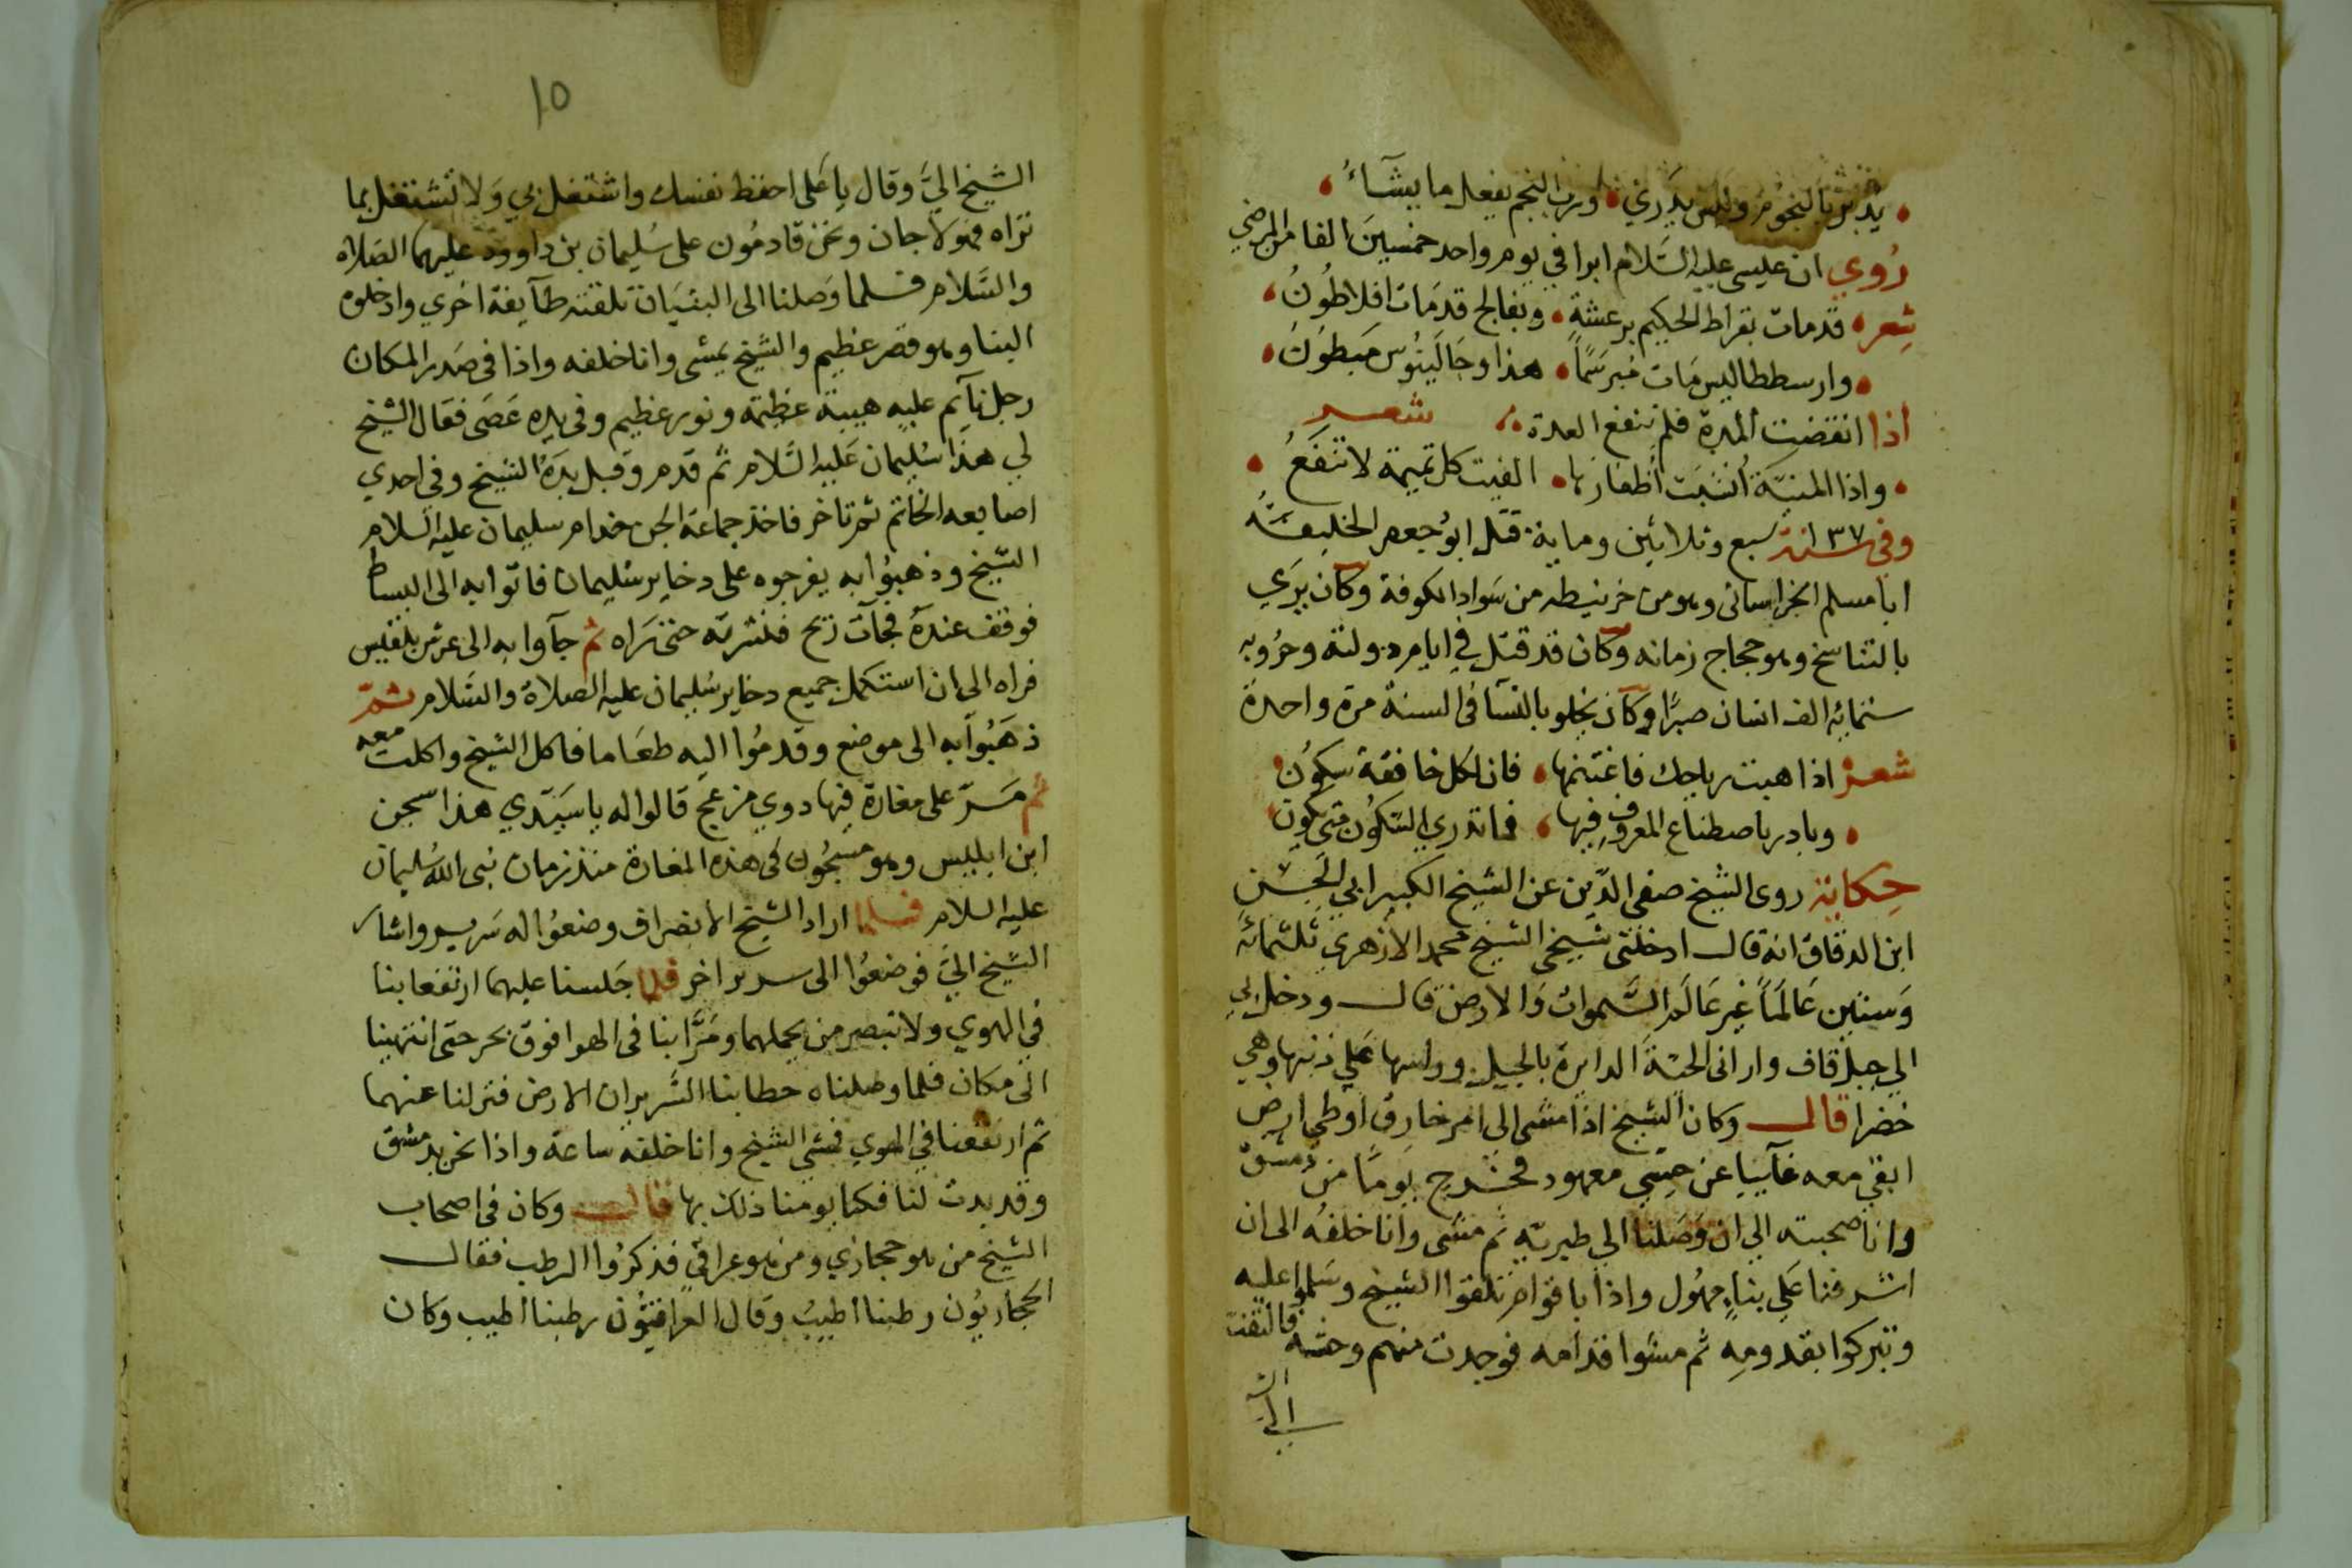 يدبر بالنجوم وليس يدري ورب النجم يفعل ما يشآءُ
رُوي ان عيسى عليه السَّلام ابرا في يوم واحد خمسين الفا من المرضي
شِعر قدمات بقراط الحكيم برعشةٍ وبفالج قدمات افلاطُونُ
وارسططاليس مَات مُبرسَمًا هذا وجَالَينُوس مَبطونُ
اذا انقضت المدة فلم تنفع العدة شعر
واذا المنيَّة أنشبَت أظفارها الفيت كل تميمة لا تنفعُ
وفي سنة ١٣٧ سبع وثلاثين وماية قتل ابوُجعفر الخليفَة
ابا مسلم الخراسانى وهو من خرنيطه من سَواد الكوفة وكان يرَي
بالتناسخ وهو حجاج زمانه وكان قد قتل في ايام دولته وحرُوبه
ستمائه الف انسان صبرًا وكان يخلو بالنسآ فى السنة مرة واحدة
شعر اذا هبت رياحك فاغتنمها فان لكل خافقة سكونُ
وبادر باصطناع المعروف فيها فما تدري السكون متى يكون
حِكاية روى الشيخ صفى الدّين عن الشيخ الكبير ابي الحَسَن
ابن الدقاق انه قال ادخلنى شيخى الشيخ محمد الازهري ثلثمائة
وَستين عَالَمًا غير عَالَم السَّموات وَالارض قال ودخل بي
الي جبل قاف وارانى الحيّة الدايرة بالجبل وراسها عَلي ذنبها وهي
خضرا قال وكان الشيخ اذا مشى الى امر خارق او طي ارض
ابقى معه غآيبا عن حِسّي معهود فخرج يَومًا من دمشق
وانا صحبته الي ان وَصَلنا الي طبريّة ثم مشى وانا خلفه الى ان
اشرفنا عَلي بناءٍ مهُول واذا باقوام تلقوا الشيخ وسَلموا عليه
وتبركوا بقدومِه ثم مشوا قدامه فوجدت منهم وحشه فالتفت
الي
١٥
الشيخ اليَّ وقال يا عَلى احفظ نفسك واشتغل بي وَلا تشتغل بما
تراه فهولا جان ونحن قادمُون على سُليمان بن داوود عليهما الصَلاه
والسَّلام فلما وَصلنا الى البنيَان تلقته طآيفة اخري وادخلوه
البنا وهو قصر عظيم والشيخ يمشى وانا خلفه واذا فى صَدر المكان
رجل نآئم عليه هيبة عظيمة ونور عظيم وفى يده عَصَى فقال الشيخ
لي هذا سُليمان عَليه السَّلام ثم قدم وقبل يدَهُ الشيخ وفى احدي
اصابعه الخاتم ثم تاخر فاخذ جماعة الجن خدام سليمان عليه السلام
الشيخ وذهبُوا به يفرجوه على دخاير سُليمان فاتوا به الى البساط
فوقف عندهُ فجآت ريح فنشرته حتى نراه ثم جآوا به الى عرش بلقيس
فراه الى ان استكمل جميع دخاير سُليمان عليه الصلاة والسَّلام ثمّ
ذهَبُوا به الى موضع وقدمُوا اليه طعَاما فاكل الشيخ واكلت معه
ثم مَرّ على مغارة فيها دوي مزعج قالوا له يا سَيّدي هذا سجن
ابن ابليس وهو مسجُون فى هذه المغارة منذ زمان نبى الله سُليمان
عليه السلام فلما اراد الشيخ الانصراف وضعُوا له سَرير واشار
الشيخ اليَّ فوضعُوا الى سرير اخر فلما جَلسنا عليهما ارتفعا بنا
في الهوي ولا نبصر من يحملهما ومَرَّا بنا فى الهوا فوق بحر حتى انتهينا
الى مكان فلما وصلناه حطا بنا السَّريران الارض فنزلنا عنهما
ثم ارتفعنا في الهوي فمشى الشيخ وانا خلفه ساعة واذا نحن بدمشق
وقد بدت لنا فكنا يومنا ذلك بها قال وكان فى اصحاب
الشيخ من هو حجازي ومن هو عراقى فذكرُوا الرطب فقال
الحجازيُون رطبنا اطيبُ وَقال العراقيُّون رطبنا اطيب وكان